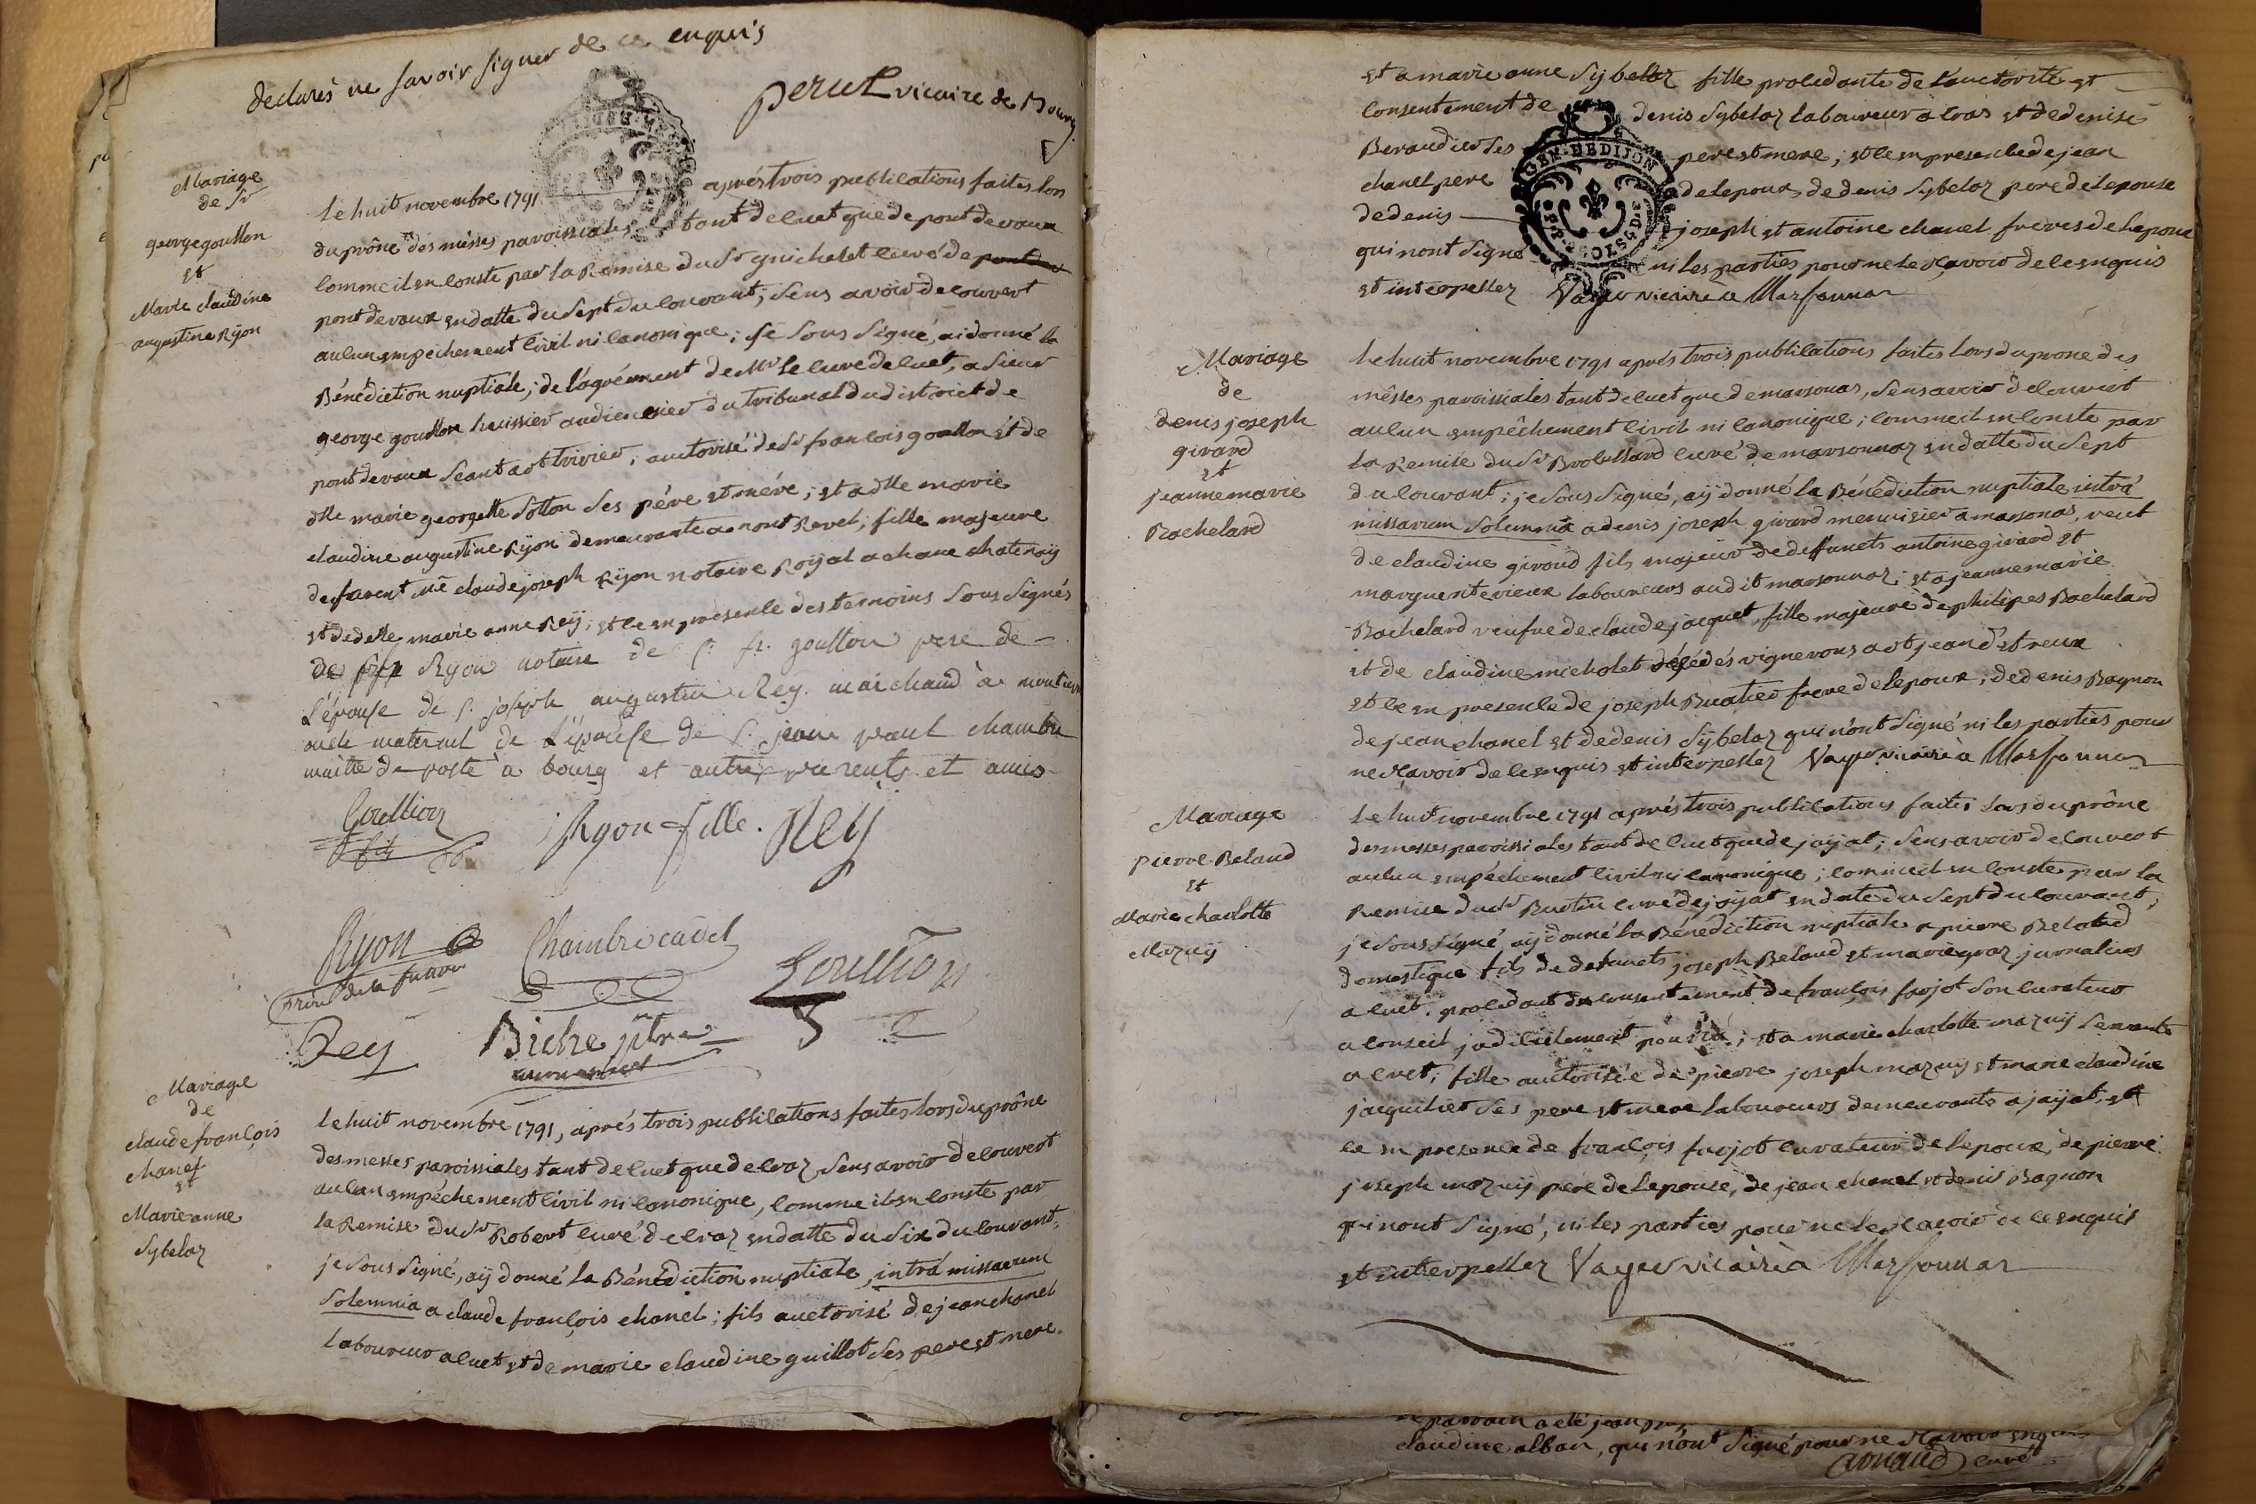 declarés ne savoir signer de ce enquis
perret vicaire de Bourg
Mariage
de Sr
george goullon
et
Marie claudine
augustine Ryon
le huit novembre 1791 après trois publications faites lors
du prône des mésses paroissiales tant de cuet que de pont de vaux
comme il en conste par la Remise du Sr guichelet curé de pont de
pont de vaux en datte du sept du courant; sens avoir decouvert
aucun empéchement civil ni canonique; je sous signé, ai donné la
Bénédiction nuptiale; de l'agrément de Mr le curé de cuet, a sieur
george goullon huissier audiencier du tribunal du district de
pont de vaux séant a st trivier; auctorisé de Sr francois goullon et de
dlle marie georgette Sotton ses père et mére; et a dlle marie
claudine augustine Ryon demeurante a mont Revel; fille majeure
de furent me claude joseph Ryon notaire Royal a chane chatenay
et de delle marie anne Rey; et ce en présence des temoins sous signés
de Ryon notaire de Sr fr. goullon pere de
L'épouse de Sr joseph augustin Rey marchand à
oncle maternel de L'épouse de Sr jean paul chambre
maitre de poste à bourg et autres parents et amis
Goullion
Ryon fille. Rey
Ryon
Chambre cadet
Goullion
Rey
Biche ptre
Mariage
de
claude françois
chanel
et
Marie anne
Sybelaz
le huit novembre 1791, aprés trois publications faites lors du prône
des messes paroissiales tant de cuet que de craz sens avoir decouvert
aucun empéchement civil ni canonique, comme il en conste par
la Remise du Sr Robert curé de craz en datte du six du courant;
je sous signé, aÿ donné la Bénédiction nuptiale, intrá missarum
solemnia a claude françois chanel; fils auctorisé de jean chanel
laboureur a cuet et de marie claudine guillot ses pere et mere.
et a marie anne Sybelaz fille procedante de l'auctorité et
consentement de denis Sybelaz laboureur a cras et de denise
Beraudier ses pere et mere; et ce en presence de jean
chanel pere de lepoux, de denis Sybelaz pere de lepouse
de denis joseph et antoine chanel freres de lepoux
GEN. DE DIJON
qui nont signé ni les parties pour ne le sçavoir de ce enquis
et interpellez Vayer vicaire a Marsonnas
Mariage
de
denis joseph
girard
et
jeanne marie
Bachelard
le huit novembre 1791 aprés trois publications faites lors du prone des
mésses paroissiales tant de cuet que de marsonas, sens avoir decouvert
aucun empêchement civil ni canonique; comme il en conste par
la Remise du Sr Brobussard curé de marsonnaz en datte du sept
du courant; je sous signé, aÿ donné la Bénédiction nuptiale intrá
missarum solemnia a denis joseph girard menuisier a marsonas, veuf
de claudine giroud fils majeur de deffunets antoine girard et
marguerite vieux laboureurs audit marsonnaz; et a jeanne marie
Bachelard veufve de claude jacquet fille majeure de philipes Bachelard
et de claudine micholet décédés vignerons a st jean d'etreux
et ce en presence de joseph Buatier frere de lepoux; de denis Bagnon
de jean chanel et de denis Sÿbelaz qui n'ont signé ni les parties pour
ne sçavoir de ce enquis et interpellez Vayer vicaire a Marsonnas
Mariage
pierre Belaud
et
Marie charlotte
Mazuy
le huit novembre 1791 aprés trois publications faites lors du prône
des messes paroissiales tant de cuet que de jayat; sens avoir decouvert
aucun empéchement civil ni canonique; comme il en conste par la
Remise du Sr Burtin curé de jayat en date du sept du courant;
je sous signé, aÿ donné la Bénédiction nuptiale a pierre Belaud
domestique fils de defunets joseph Belaud et marie graz jurnaliers
a cuet. procedant du consentement de françois frojot son curateur
a conseil judiciélement pourvu; et a marie charlotte mazuy servante
a cuet; fille auctorisée de pierre joseph mazuy et marie claudine
jacquilier ses pere et mere laboureurs demeurants a jayat; et
ce en presence de françois frojot curateur de lepoux, de pierre
joseph mazuÿ pére de lepouse, de jean chanel et denis Bagnon
qui nont signé, ni les parties pour ne le sçavoir de ce enquis
et interpellez Vayer vicaire a Marsonnas
parrain a eté jean
claudine alban, qui n'ont signé pour ne sçavoir enquis
curé